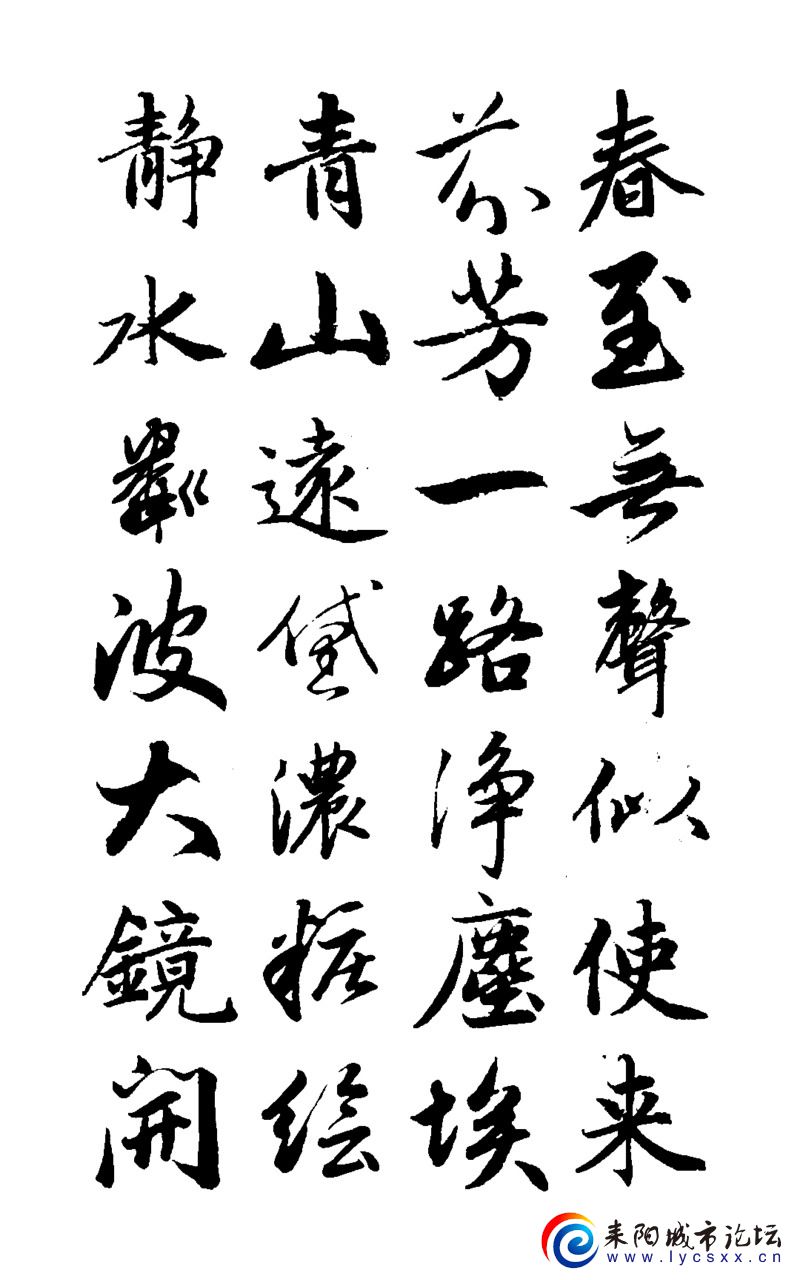 春至無聲似使来
芬芳一路淨塵埃
青山遠黛濃粧绘
静水粼波大鏡開
耒阳城市论坛
www.lycsxx.cn